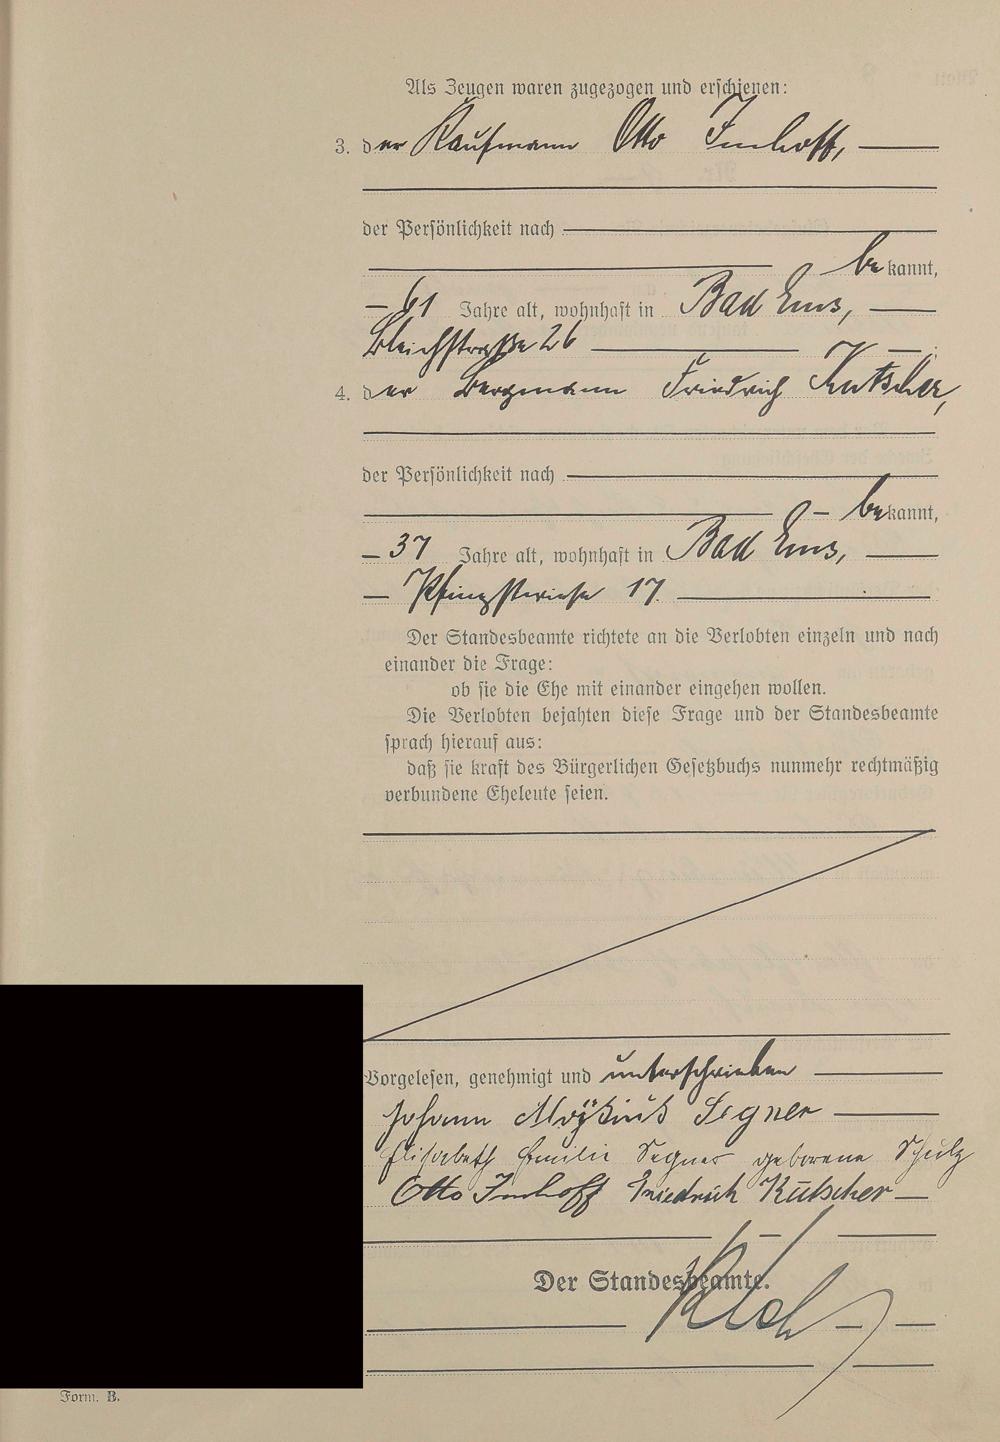 Als Zeugen waren zugezogen und erschienen:
3. der Kaufmann Otto Imhoff,
der Persönlichkeit nach
bekannt,
61 Jahre alt, wohnhaft in Bad Ems,
Bleichstraße 26
4. der Bergmann Friedrich Kutscher,
der Persönlichkeit nach
bekannt,
37 Jahre alt, wohnhaft in Bad Ems,
Pfingstwiese 17.
Der Standesbeamte richtete an die Verlobten einzeln und nach
einander die Frage:
ob sie die Ehe mit einander eingehen wollen.
Die Verlobten bejahten diese Frage und der Standesbeamte
sprach hierauf aus:
daß sie kraft des Bürgerlichen Gesetzbuchs nunmehr rechtmäßig
verbundene Eheleute seien.
Vorgelesen, genehmigt und unterschrieben
Johann Segner
Elisabeth Emilie Segner geborene Schulz
Otto Imhoff Friedrich Kutscher
Der Standesbeamte.
Form. B.